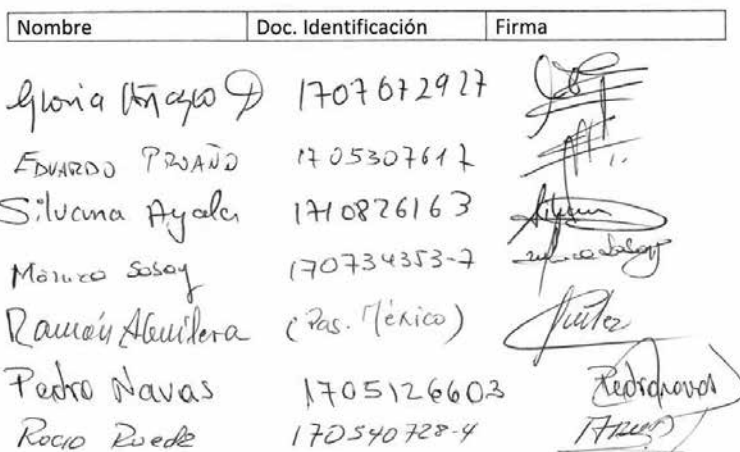 Nombre Doc. Identificación Firma
Gloria D 1707672927
EDUARDO PROAÑO 1705307617
Silvana Ayala 1710826163
Sosoy 170734353-7
Ramón Aguilera (Pas. México)
Pedro Navas 1705126603 Pedro Navas
Rocio Rueda 170540728-4